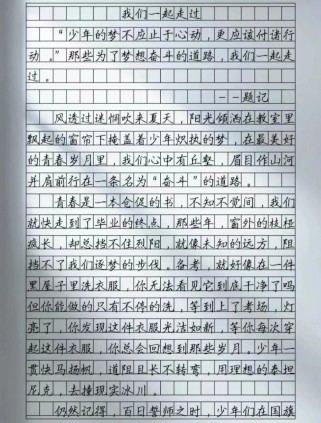 我们一起走过
“少年的梦不应止于心动，更应该付诸行
动。”那些为了梦想奋斗的道路，我们一起走
过。
——题记
风透过迷惘吹来夏天，阳光倾洒在教室里
飘起的窗帘下掩盖着少年炽执的梦，在最美好
的青春岁月里，我们心中有丘壑，眉目作山河
并肩前行在一条名为“奋斗”的道路。
青春是一本仓促的书，不知不觉间，我们
就快走到了毕业的终点，那些年，窗外的枝桠
疯长，却总挡不住烈阳，就像未知的远方，阻
挡不了我们逐梦的步伐。备考，就好像在一件
黑屋子里洗衣服，你无法看见它到底干净了吗
但你能做的只有不停的洗，等到上了考场，灯
亮了，你发现这件衣服光洁如新，等你每次穿
起这件衣服，你总会回想到那些岁月。少年一
贯快马扬帆，道阻且长不转弯，用理想的泰坦
尼克，去撞现实冰川。
仍然记得，百日誓师之时，少年们在国旗